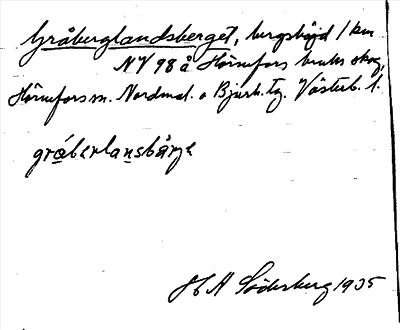 Gråberglandsberget, bergshöjd 1 km
NV 98 å Hörnefors bruks skog,
Hörnefors sn. Nordmal. o Bjurh. tg. Västerb. l.
gråberlansbärje
H A Söderberg 1935